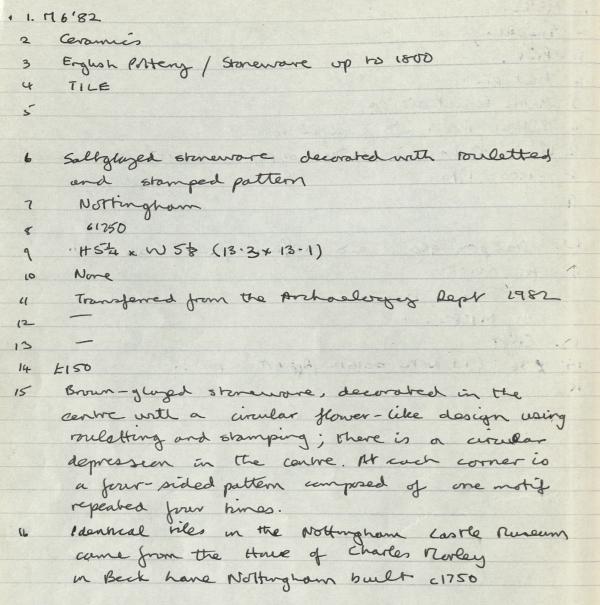 1. M6'82
2 Ceramics
3 English Pottery / Stoneware up to 1800
4 TILE
5
6 Saltglazed stoneware decorated with rouletted
and stamped pattern
7 Nottingham
8 c1750
9 H5¼ x W 5⅛ (13.3 x 13.1)
10 None
11 Transferred from the Archaeology Dept 1982
12 —
13 —
14 £150
15 Brown-glazed stoneware, decorated in the
centre with a circular flower-like design using
rouletting and stamping; there is a circular
depression in the centre. At each corner is
a four-sided pattern composed of one motif
repeated four times.
16 Identical tiles in the Nottingham Castle Museum
came from the House of Charles Morley
in Beck Lane Nottingham built c1750